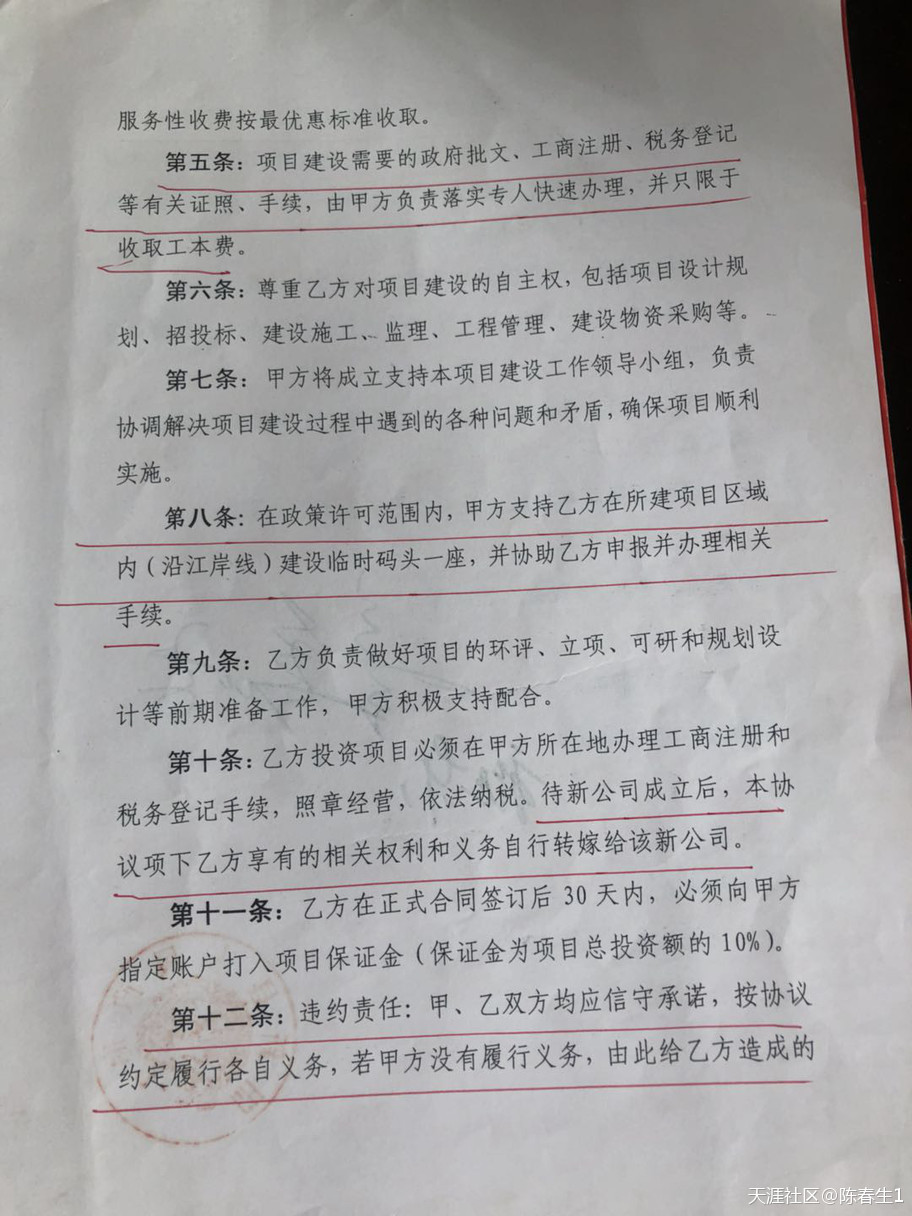 服务性收费按最优惠标准收取。
第五条：项目建设需要的政府批文、工商注册、税务登记
等有关证照、手续，由甲方负责落实专人快速办理，并只限于
收取工本费。
第六条：尊重乙方对项目建设的自主权，包括项目设计规
划、招投标、建设施工、监理、工程管理、建设物资采购等。
第七条：甲方将成立支持本项目建设工作领导小组，负责
协调解决项目建设过程中遇到的各种问题和矛盾，确保项目顺利
实施。
第八条：在政策许可范围内，甲方支持乙方在所建项目区域
内（沿江岸线）建设临时码头一座，并协助乙方申报并办理相关
手续。
第九条：乙方负责做好项目的环评、立项、可研和规划设
计等前期准备工作，甲方积极支持配合。
第十条：乙方投资项目必须在甲方所在地办理工商注册和
税务登记手续，照章经营，依法纳税。待新公司成立后，本协
议项下乙方享有的相关权利和义务自行转嫁给该新公司。
第十一条：乙方在正式合同签订后 30 天内，必须向甲方
指定账户打入项目保证金（保证金为项目总投资额的 10%）。
第十二条：违约责任：甲、乙双方均应信守承诺，按协议
约定履行各自义务，若甲方没有履行义务，由此给乙方造成的
天涯社区@陈春生1